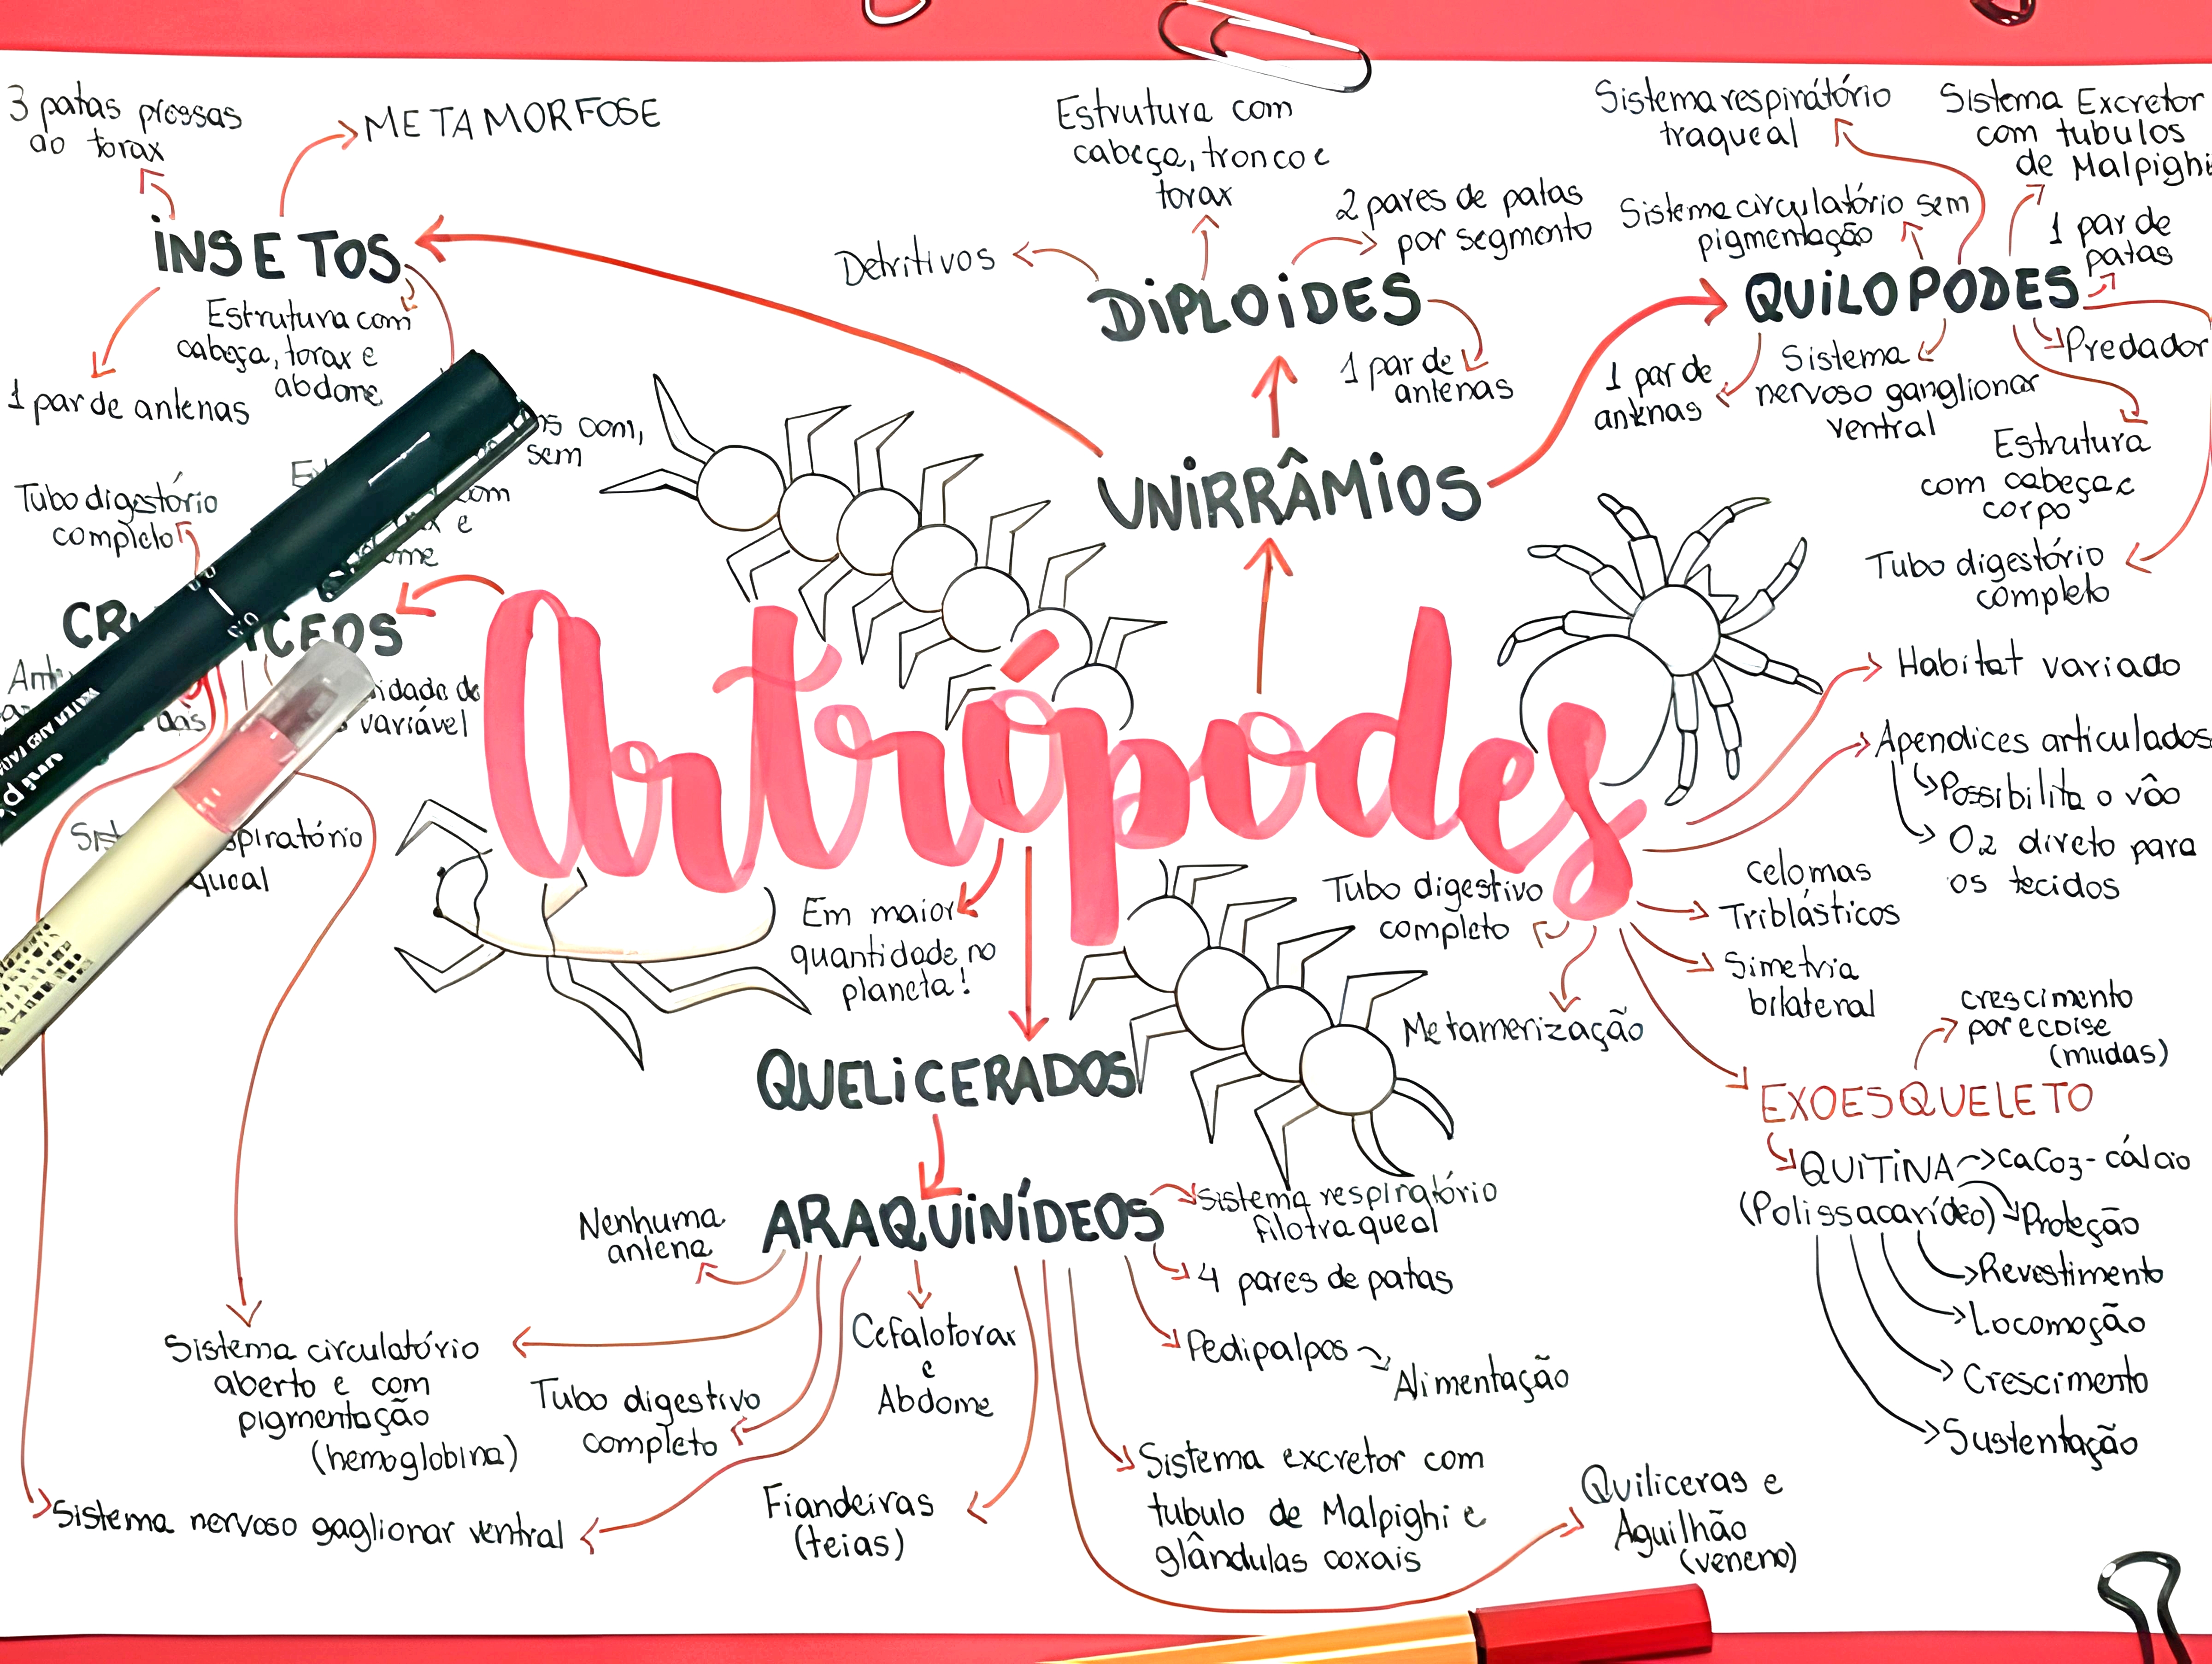 3 patas pressas
ao torax
METAMORFOSE
INSETOS
Estrutura com
cabeça, torax e
abdome
1 par de antenas
com,
sem
Tubo digestório
completo
com
e
CR
CEOS
idade de
variável
piratório
queal
Estrutura com
cabeça, tronco e
torax
Detritivos
2 pares de patas
por segmento
DIPLOIDES
1 par de
antenas
UNIRRÂMIOS
Sistema respirátório
traqueal
Sistema Excretor
com tubulos
de Malpighi
Sistema circulatório sem
pigmentação
1 par de
patas
QUILOPODES
Predador
1 par de
antenas
Sistema
nervoso ganglionar
ventral
Estrutura
com cabeça e
corpo
Tubo digestório
completo
Artrópodes
Habitat variado
Apendices articulados
Possibilita o vôo
O2 direto para
os tecidos
celomas
Triblásticos
Simetria
bilateral
Tubo digestivo
completo
Metamerização
Em maior
quantidade no
planeta!
crescimento
por ecdise
(mudas)
EXOESQUELETO
QUITINA
CaCO3 - cálcio
(Polissacarídeo)
Proteção
Revestimento
Locomoção
Crescimento
Sustentação
QUELICERADOS
ARAQUINÍDEOS
Nenhuma
antena
Sistema respiratório
filotraqueal
4 pares de patas
Pedipalpos
Alimentação
Cefalotorax
e
Abdome
Sistema circulatório
aberto e com
pigmentação
(hemoglobina)
Tubo digestivo
completo
Sistema nervoso gaglionar ventral
Fiandeiras
(teias)
Sistema excretor com
tubulo de Malpighi e
glândulas coxais
Quiliceras e
Aguilhão
(veneno)